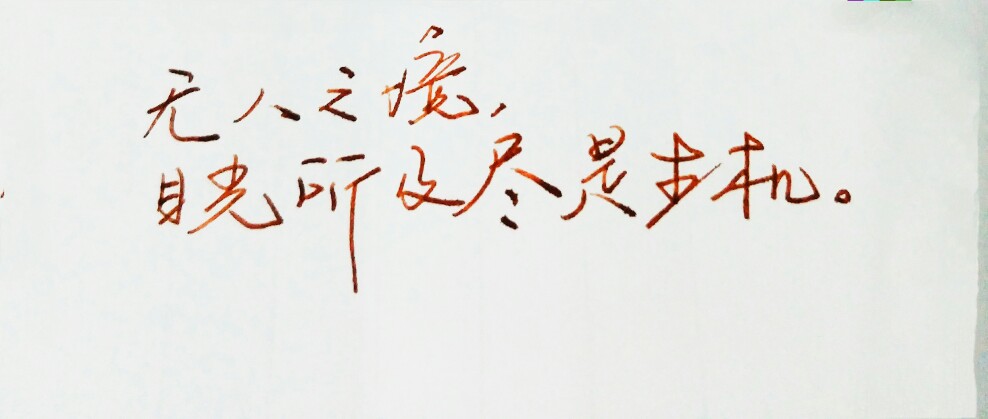 无人之境,
目光所及尽是步机。